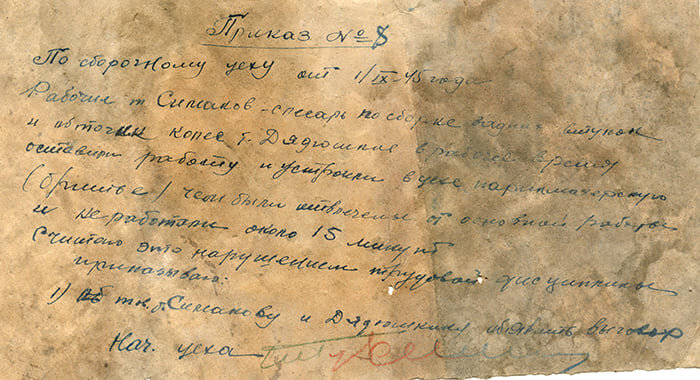 Приказ № 8
По сборочному цеху от 1/IX-45 года
Рабочие т. Симаков - слесарь по сборке задних втулок
и обточки колес т. Дядюшкин в рабочее время
оставили работу и устроили в цехе парикмахерскую
(бритье) чем были отвлечены от основной работы
и не работали около 15 минут
Считаю это нарушением трудовой дисциплины
приказываю:
1) т. Симакову и Дядюшкину объявить выговор
Нач. цеха